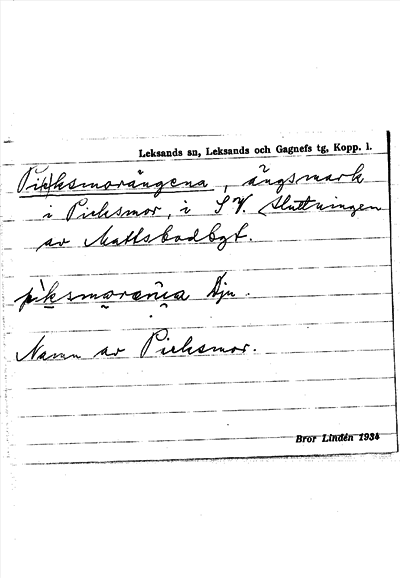 Leksands sn, Leksands och Gagnefs tg, Kopp. l.
Pi(k)ksmorängena, ängsmark
i Picksmor, i S.V. sluttningen
av Mattsbodbgt.
pìksmoræŋa Dju.
Namn av Picksmor.
Bror Lindén 1934